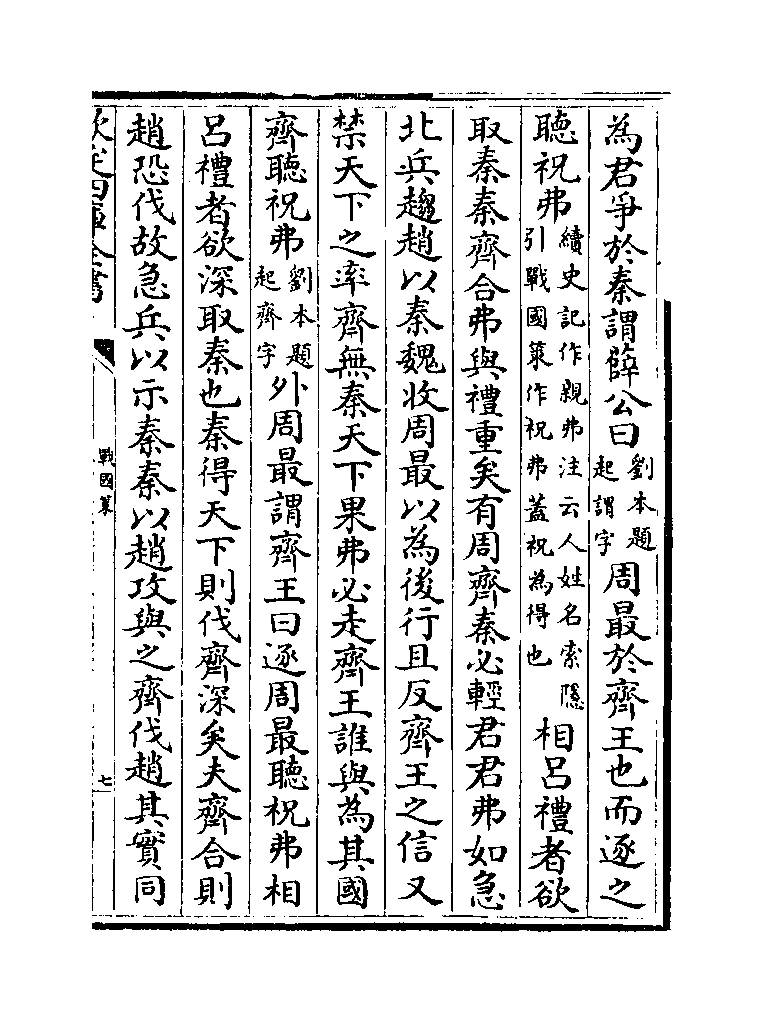 為君爭於秦謂薛公曰劉本題起謂字周最於齊王也而逐之
聽祝弗續史記作親弗注云人姓名索隱引戰國策作祝弗蓋祝為得也相呂禮者欲
取秦秦齊合弗與禮重矣有周齊秦必輕君君弗如急
北兵趨趙以秦魏收周最以為後行且反齊王之信又
禁天下之率齊無秦天下果弗必走齊王誰與為其國
齊聽祝弗劉本題起齊字外周最謂齊王曰逐周最聽祝弗相
呂禮者欲深取秦也秦得天下則伐齊深矣夫齊合則
趙恐伐故急兵以示秦秦以趙攻與之齊伐趙其實同
欽定四庫全書
戰國策
七